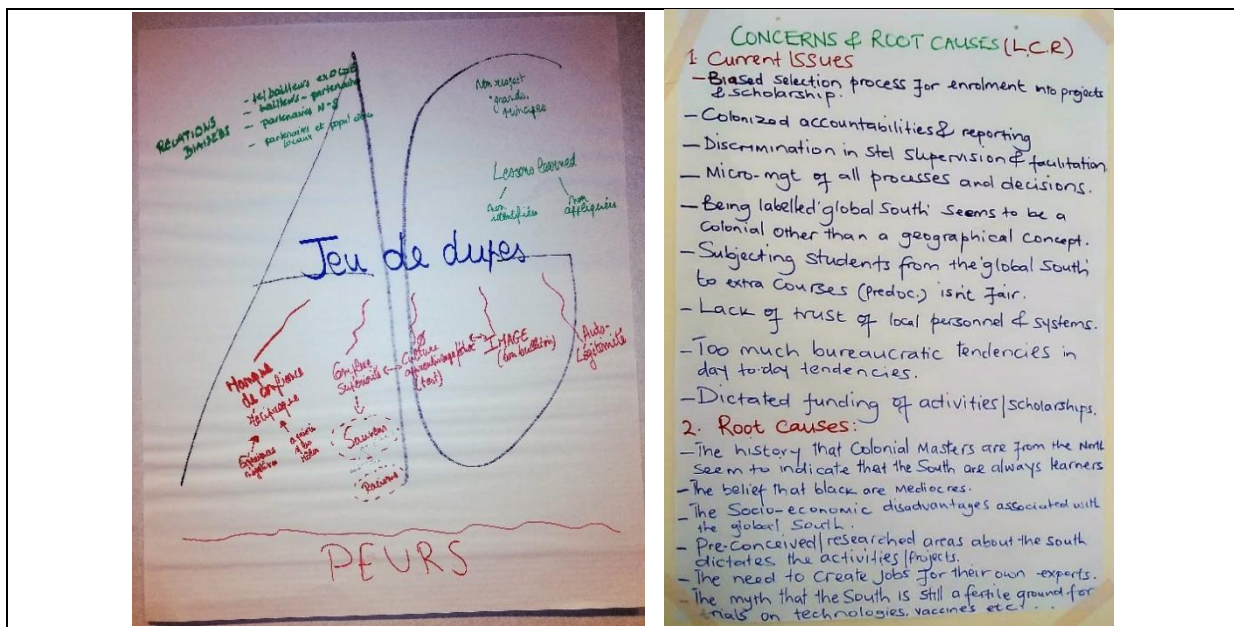 RELATIONS
BIAISÉES
- bailleurs - partenaires
- partenaires N-S
- partenaires et populations
locaux
Non respect
grands
principes
Lessons learned
non
identifiées
non
appliquées
Jeu de dupes
Manque
de confiance
réciproque
Complexe
Supériorité
Culture
apprentissage
(tout)
IMAGE
(bon bulletin)
Auto-
Légitimité
Sauveur
Racisme
PEURS
CONCERNS & ROOT CAUSES (L.C.R)
1. Current Issues
- Biased selection process for enrolment into projects
& scholarship.
- Colonized accountabilities & reporting
- Discrimination in std supervision & facilitation
- Micro-mgt of all processes and decisions.
- Being labelled 'global South' seems to be a
colonial other than a geographical concept.
- Subjecting students from the 'global South'
to extra courses (predoc.) isn't fair.
- Lack of trust of local personnel & systems.
- Too much bureaucratic tendencies in
day to-day tendencies.
- Dictated funding of activities/scholarships.
2. Root Causes:
- The history that Colonial Masters are from the North
seem to indicate that the South are always learners
- The belief that black are mediocres.
- The Socio-economic disadvantages associated with
the global South.
- Pre-conceived/researched areas about the south
dictates the activities/projects.
- The need to create jobs for their own experts.
- The myth that the South is still a fertile ground for
trials on technologies, vaccines etc...